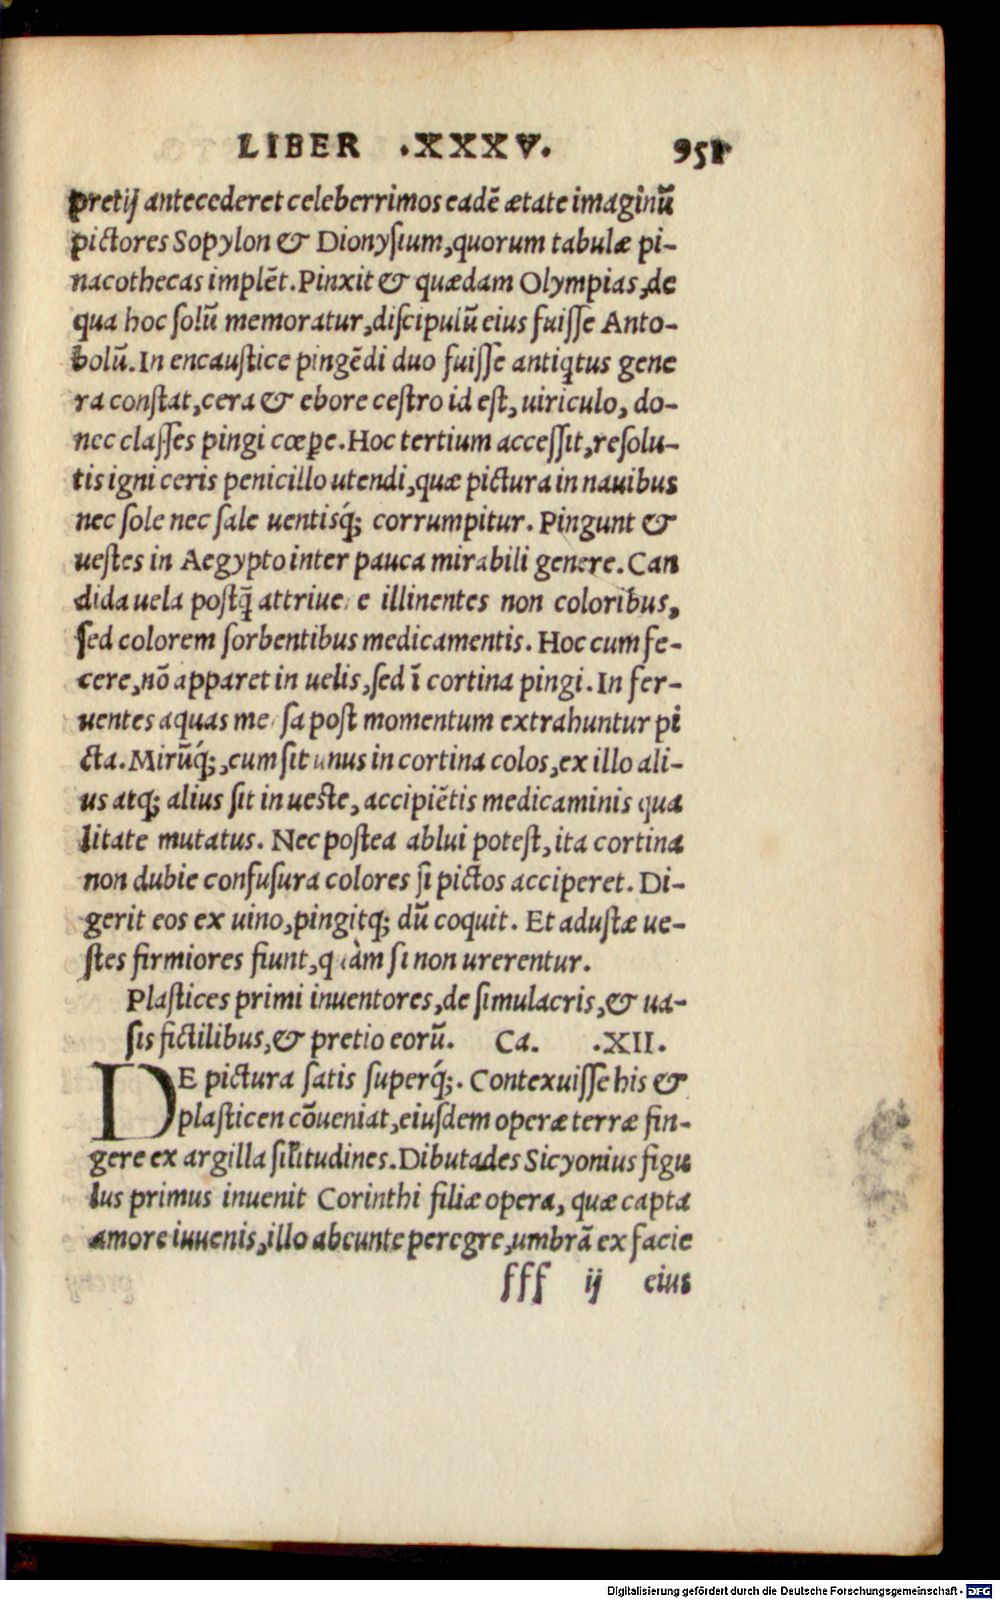 LIBER .XXXV. 951
pretij antecederet celeberrimos eadē ætate imaginū
pictores Sopylon & Dionysium, quorum tabulæ pi-
nacothecas implēt. Pinxit & quædam Olympias, de
qua hoc solū memoratur, discipulū eius fuisse Anto-
bolū. In encaustice pingēdi duo fuisse antiqtus gene
ra constat, cera & ebore cestro id est, uiriculo, do-
nec classes pingi cœpe. Hoc tertium accessit, resolu-
tis igni ceris penicillo utendi, quæ pictura in nauibus
nec sole nec sale uentisq́; corrumpitur. Pingunt &
uestes in Aegypto inter pauca mirabili genere. Can
dida uela postq̄ attriue e illinentes non coloribus,
sed colorem sorbentibus medicamentis. Hoc cum fe-
cere, nō apparet in uelis, sed ī cortina pingi. In fer-
uentes aquas me sa post momentum extrahuntur pi
cta. Mirūq́;, cum sit unus in cortina colos, ex illo ali-
us atq; alius sit in ueste, accipiētis medicaminis qua
litate mutatus. Nec postea ablui potest, ita cortina
non dubie confusura colores si pictos acciperet. Di-
gerit eos ex uino, pingitq; dū coquit. Et adustæ ue-
stes firmiores fiunt, quàm si non urerentur.
Plastices primi inuentores, de simulacris, & ua-
sis fictilibus, & pretio eorū. Ca. .XII.
DE pictura satis superq́;. Contexuisse his &
plasticen cōueniat, eiusdem operæ terræ fin-
gere ex argilla silitudines. Dibutades Sicyonius figu
lus primus inuenit Corinthi filiæ opera, quæ capta
amore iuuenis, illo abeunte peregre, umbrā ex facie
fff ij eius
Digitalisierung gefördert durch die Deutsche Forschungsgemeinschaft - DFG